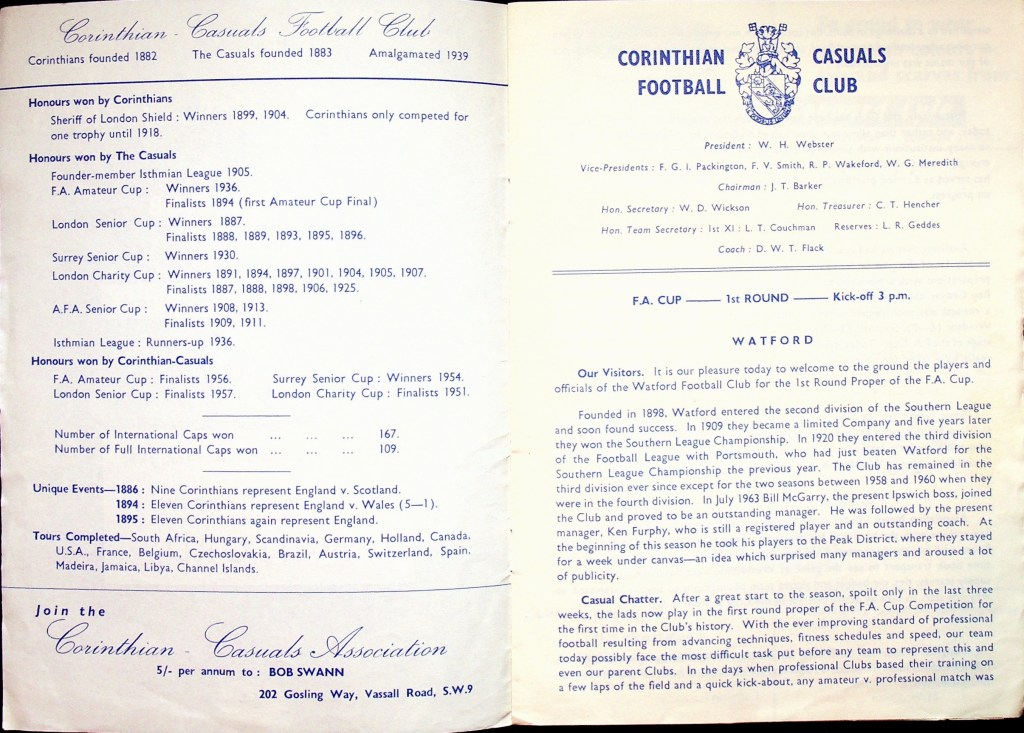 Corinthian - Casuals Football Club
Corinthians founded 1882 The Casuals founded 1883 Amalgamated 1939
Honours won by Corinthians
Sheriff of London Shield : Winners 1899, 1904. Corinthians only competed for
one trophy until 1918.
Honours won by The Casuals
Founder-member Isthmian League 1905.
F.A. Amateur Cup : Winners 1936.
Finalists 1894 (first Amateur Cup Final)
London Senior Cup : Winners 1887.
Finalists 1888, 1889, 1893, 1895, 1896.
Surrey Senior Cup : Winners 1930.
London Charity Cup : Winners 1891, 1894, 1897, 1901, 1904, 1905, 1907.
Finalists 1887, 1888, 1898, 1906, 1925.
A.F.A. Senior Cup : Winners 1908, 1913.
Finalists 1909, 1911.
Isthmian League : Runners-up 1936.
Honours won by Corinthian-Casuals
F.A. Amateur Cup : Finalists 1956. Surrey Senior Cup : Winners 1954.
London Senior Cup : Finalists 1957. London Charity Cup : Finalists 1951.
Number of International Caps won ... ... ... 167.
Number of Full International Caps won ... ... ... 109.
Unique Events—1886 : Nine Corinthians represent England v. Scotland.
1894 : Eleven Corinthians represent England v. Wales (5—1).
1895 : Eleven Corinthians again represent England.
Tours Completed—South Africa, Hungary, Scandinavia, Germany, Holland, Canada,
U.S.A., France, Belgium, Czechoslovakia, Brazil, Austria, Switzerland, Spain,
Madeira, Jamaica, Libya, Channel Islands.
Join the
Corinthian - Casuals Association
5/- per annum to : BOB SWANN
202 Gosling Way, Vassall Road, S.W.9
CORINTHIAN CASUALS
FOOTBALL CLUB
President : W. H. Webster
Vice-Presidents : F. G. I. Packington, F. V. Smith, R. P. Wakeford, W. G. Meredith
Chairman : J. T. Barker
Hon. Secretary : W. D. Wickson Hon. Treasurer : C. T. Hencher
Hon. Team Secretary : 1st XI : L. T. Couchman Reserves : L. R. Geddes
Coach : D. W. T. Flack
F.A. CUP —— 1st ROUND —— Kick-off 3 p.m.
WATFORD
Our Visitors. It is our pleasure today to welcome to the ground the players and
officials of the Watford Football Club for the 1st Round Proper of the F.A. Cup.
Founded in 1898, Watford entered the second division of the Southern League
and soon found success. In 1909 they became a limited Company and five years later
they won the Southern League Championship. In 1920 they entered the third division
of the Football League with Portsmouth, who had just beaten Watford for the
Southern League Championship the previous year. The Club has remained in the
third division ever since except for the two seasons between 1958 and 1960 when they
were in the fourth division. In July 1963 Bill McGarry, the present Ipswich boss, joined
the Club and proved to be an outstanding manager. He was followed by the present
manager, Ken Furphy, who is still a registered player and an outstanding coach. At
the beginning of this season he took his players to the Peak District, where they stayed
for a week under canvas—an idea which surprised many managers and aroused a lot
of publicity.
Casual Chatter. After a great start to the season, spoilt only in the last three
weeks, the lads now play in the first round proper of the F.A. Cup Competition for
the first time in the Club's history. With the ever improving standard of professional
football resulting from advancing techniques, fitness schedules and speed, our team
today possibly face the most difficult task put before any team to represent this and
even our parent Clubs. In the days when professional Clubs based their training on
a few laps of the field and a quick kick-about, any amateur v. professional match was